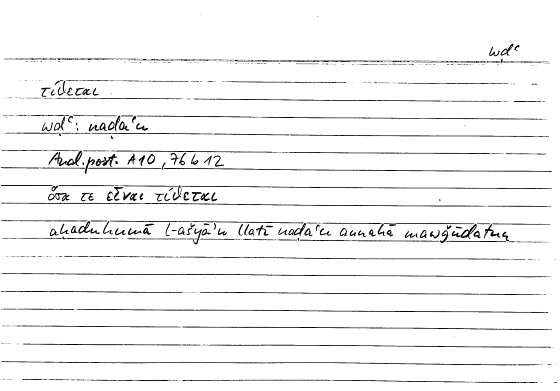 wḍʿ
τίθεται
wḍʿ: naḍaʿu
Anal. post. A10, 76 b 12
ὅσα τε εἶναι τίθεται
aḥaduhumā l-ašyāʾu llatī naḍaʿu annahā mawǧūdatun